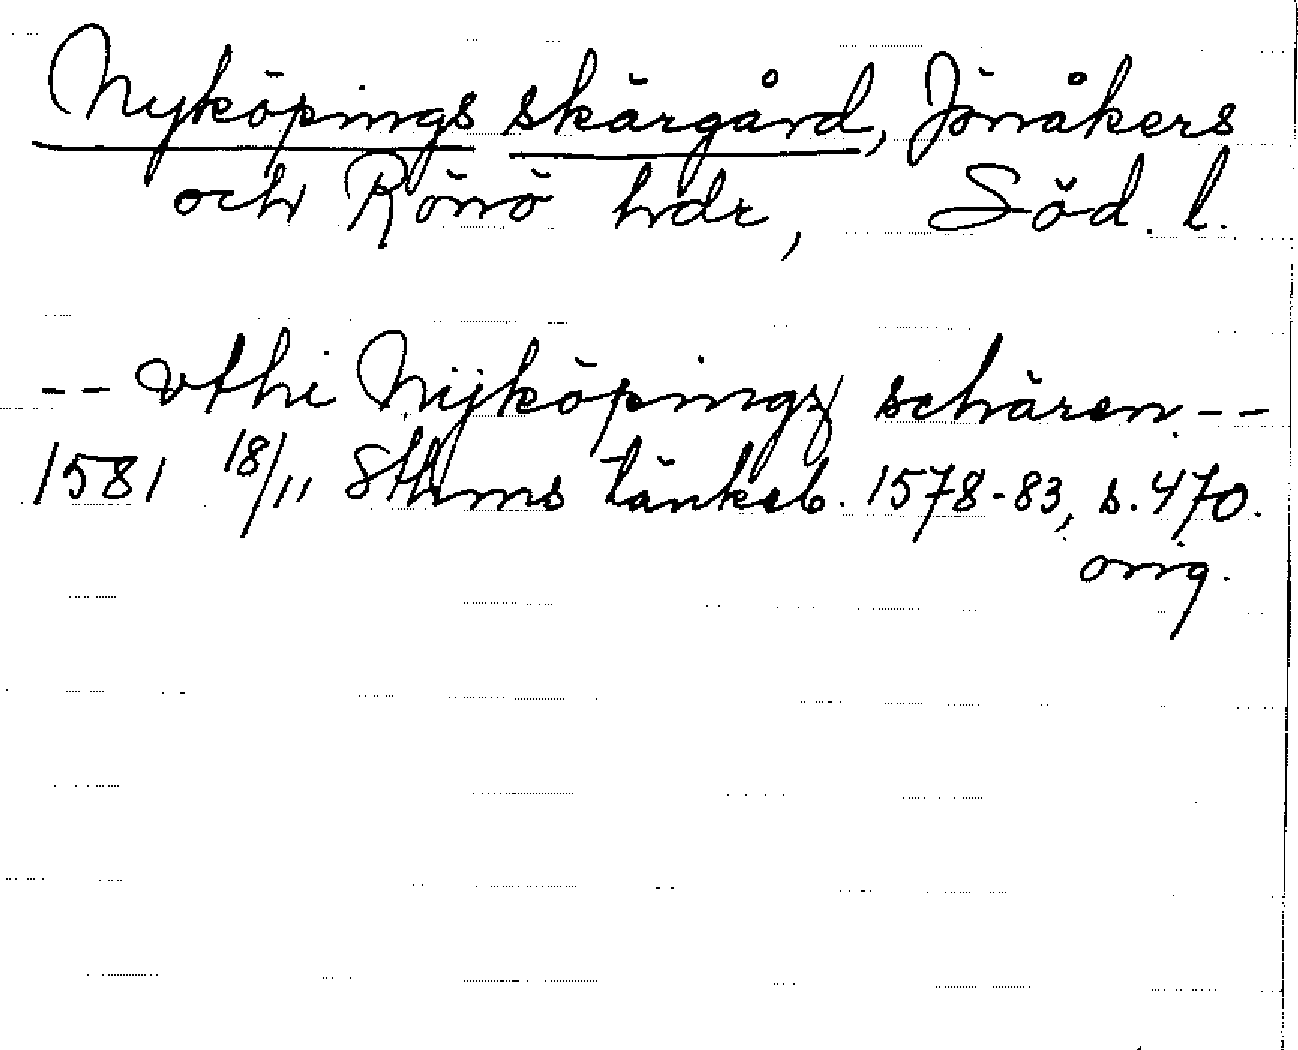 Nyköpings skärgård, Jönåkers
och Rönö hdr, Söd. l.
-- vthi Nijköpingz schären --
1581 18/11 Sthms tänkeb. 1578-83, s. 470.
orig.